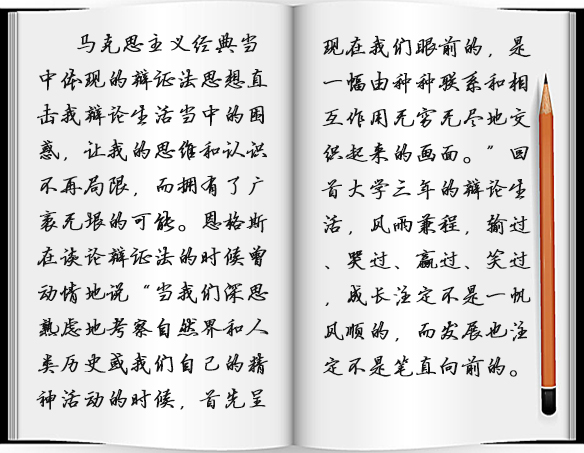 马克思主义经典当
中体现的辩证法思想直
击我辩论生活当中的困
惑，让我的思维和认识
不再局限，而拥有了广
袤无垠的可能。恩格斯
在谈论辩证法的时候曾
动情地说“当我们深思
熟虑地考察自然界和人
类历史或我们自己的精
神活动的时候，首先呈
现在我们眼前的，是
一幅由种种联系和相
互作用无穷无尽地交
织起来的画面。”回
首大学三年的辩论生
活，风雨兼程，输过
、哭过、赢过、笑过
，成长注定不是一帆
风顺的，而发展也注
定不是笔直向前的。